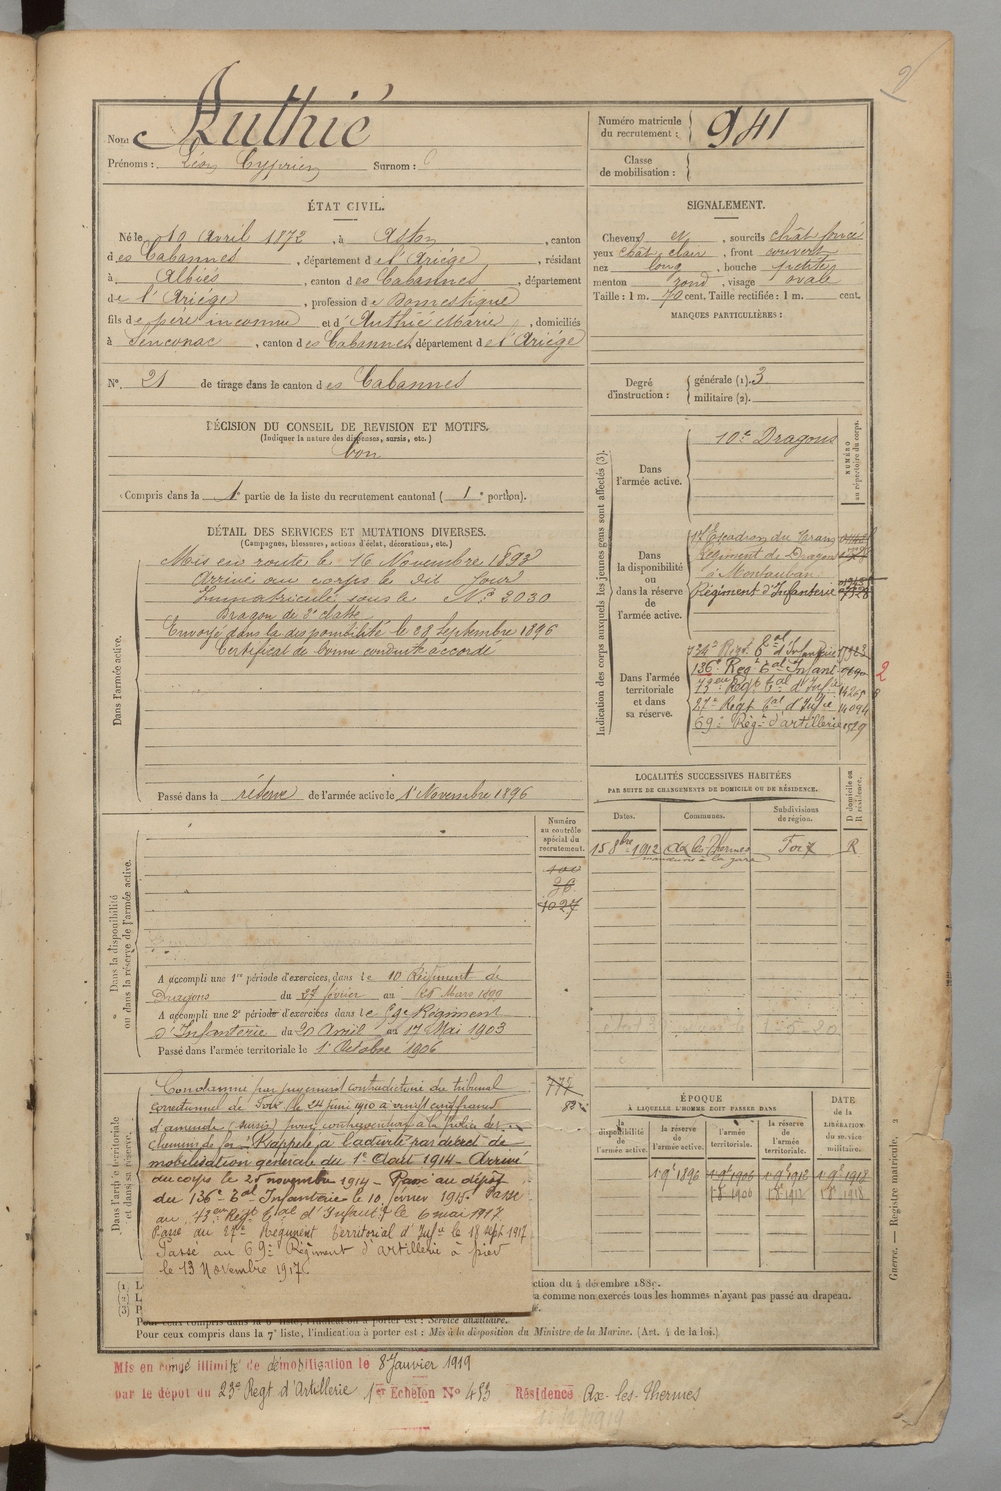 Nom Authié
Prénoms : Léon Cyprien Surnom :
Numéro matricule du recrutement : 941
Classe de mobilisation :
ÉTAT CIVIL.
Né le 10 Avril 1872, à Aston, canton
des Cabannes, département de l'Ariége, résidant
à Albiès, canton des Cabannes, département
de l'Ariége, profession de Domestique
fils de père inconnu et d'Authié Marie, domiciliés
à Senconac, canton des Cabannes, département de l'Ariége
N° 21 de tirage dans le canton des Cabannes
DÉCISION DU CONSEIL DE REVISION ET MOTIFS.
(Indiquer la nature des dispenses, sursis, etc.)
bon
Compris dans la 1e partie de la liste du recrutement cantonal ( 1e portion).
SIGNALEMENT.
Cheveux et, sourcils chât foncé
yeux chât clair, front couvert
nez long, bouche petite
menton rond, visage ovale
Taille : 1 m. 70 cent. Taille rectifiée : 1 m. cent.
MARQUES PARTICULIÈRES :
Degré d'instruction : générale (1). 3
militaire (2).
DÉTAIL DES SERVICES ET MUTATIONS DIVERSES.
(Campagnes, blessures, actions d'éclat, décorations, etc.)
Dans l'armée active.
Mis en route le 16 Novembre 1893
Arrivé au corps le dit jour
Immatriculé sous le N° 2030
Dragon de 2e classe
Envoyé dans la disponibilité le 28 Septembre 1896
Certificat de bonne conduite accordé
Passé dans la réserve de l'armée active le 1er Novembre 1896
Indication des corps auxquels les jeunes gens sont affectés (3).
NUMÉRO au répertoire du corps.
Dans l'armée active.
10e Dragons
Dans la disponibilité ou dans la réserve de l'armée active.
17 Escadron du Train
Régiment de Dragon
à Montauban
Régiment d'Infanterie
Dans l'armée territoriale et dans sa réserve.
134e Regt Tal d'Infanterie
136e Regt Tal Infant
73eme Regt Tal d'Infie
27e Regt Tal d'Infie 14094
69e Régt d'artillerie 1529
2
LOCALITÉS SUCCESSIVES HABITÉES
PAR SUITE DE CHANGEMENTS DE DOMICILE OU DE RÉSIDENCE.
Dates. Communes. Subdivisions de région. D domicile ou R résidence.
15 8bre 1912 Ax les Thermes Foix R
manœuvre à la gare
Dans la disponibilité ou dans la réserve de l'armée active.
Numéro au contrôle spécial du recrutement.
1027
A accompli une 1re période d'exercices, dans le 10 Régiment de
Dragons du 27 février au 26 Mars 1899
A accompli une 2e période d'exercices dans le 59e Régiment
d'Infanterie du 20 Avril au 17 Mai 1903
Passé dans l'armée territoriale le 1er Octobre 1906
Dans l'armée territoriale et dans sa réserve.
Condamné par jugement contradictoire du tribunal
correctionnel de Foix le 24 juin 1910 à vingt cinq francs
d'amende (sursis) pour contravention à la police des
chemins de fer. Rappelé à l'activité par décret de
mobilisation générale du 1er Août 1914 - Arrivé
au corps le 25 novembre 1914 - Passé au dépôt
du 136e Tal Infanterie le 10 février 1915. Passé
au 73eme Regt Tal d'Infant le 6 mai 1917
Passé au 27e Régiment territorial d'Infie le 18 sept 1917
Passé au 69e Régiment d'artillerie à pied
le 13 Novembre 1917.
ÉPOQUE
À LAQUELLE L'HOMME DOIT PASSER DANS
la disponibilité de l'armée active. la réserve de l'armée active. l'armée territoriale. la réserve de l'armée territoriale.
DATE de la LIBÉRATION du service militaire.
1 9e 1896 1 9e 1906 1 9e 1912 1 9e 1918
1 8e 1906 1 8e 1912 1 8e 1918
ction du 4 décembre 1889.
a comme non exercés tous les hommes n'ayant pas passé au drapeau.
Service auxiliaire.
Pour ceux compris dans la 7e liste, l'indication à porter est : Mis à la disposition du Ministre de la Marine. (Art. 4 de la loi.)
Guerre. — Registre matricule. 2
Mis en congé illimité de démobilisation le 8 Janvier 1919
par le dépôt du 23e Regt d'Artillerie 1er Echelon N° 453 Résidence Ax-les-Thermes